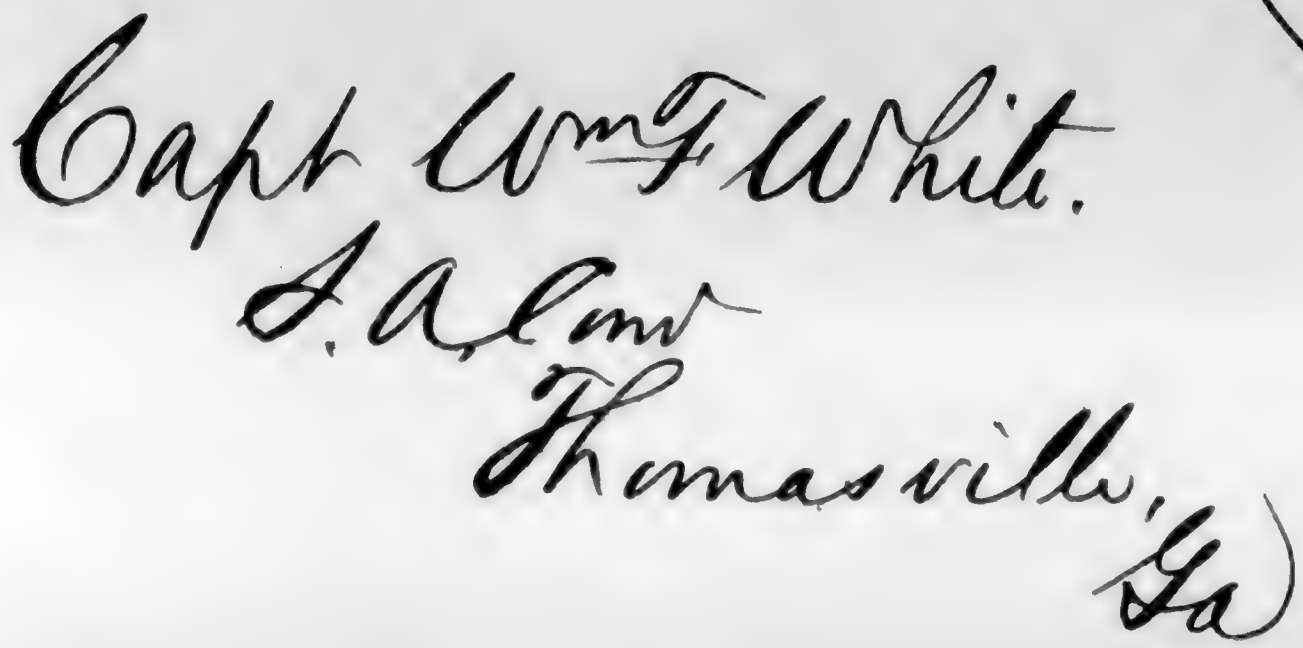 Capt Wm F White.
S. A. Com
Thomasville,
Ga